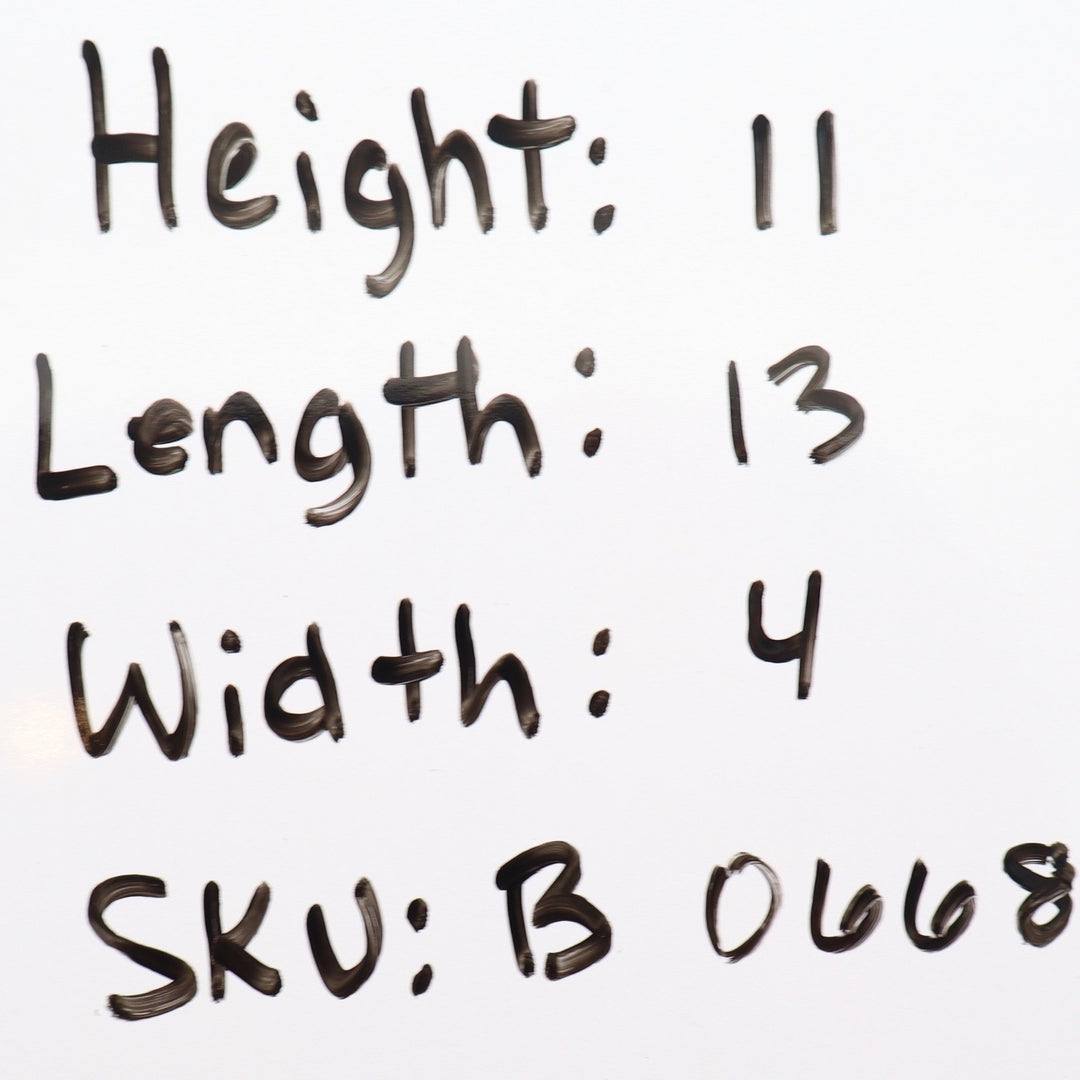 Height: 11
Length: 13
Width: 4
SKU: B 0668